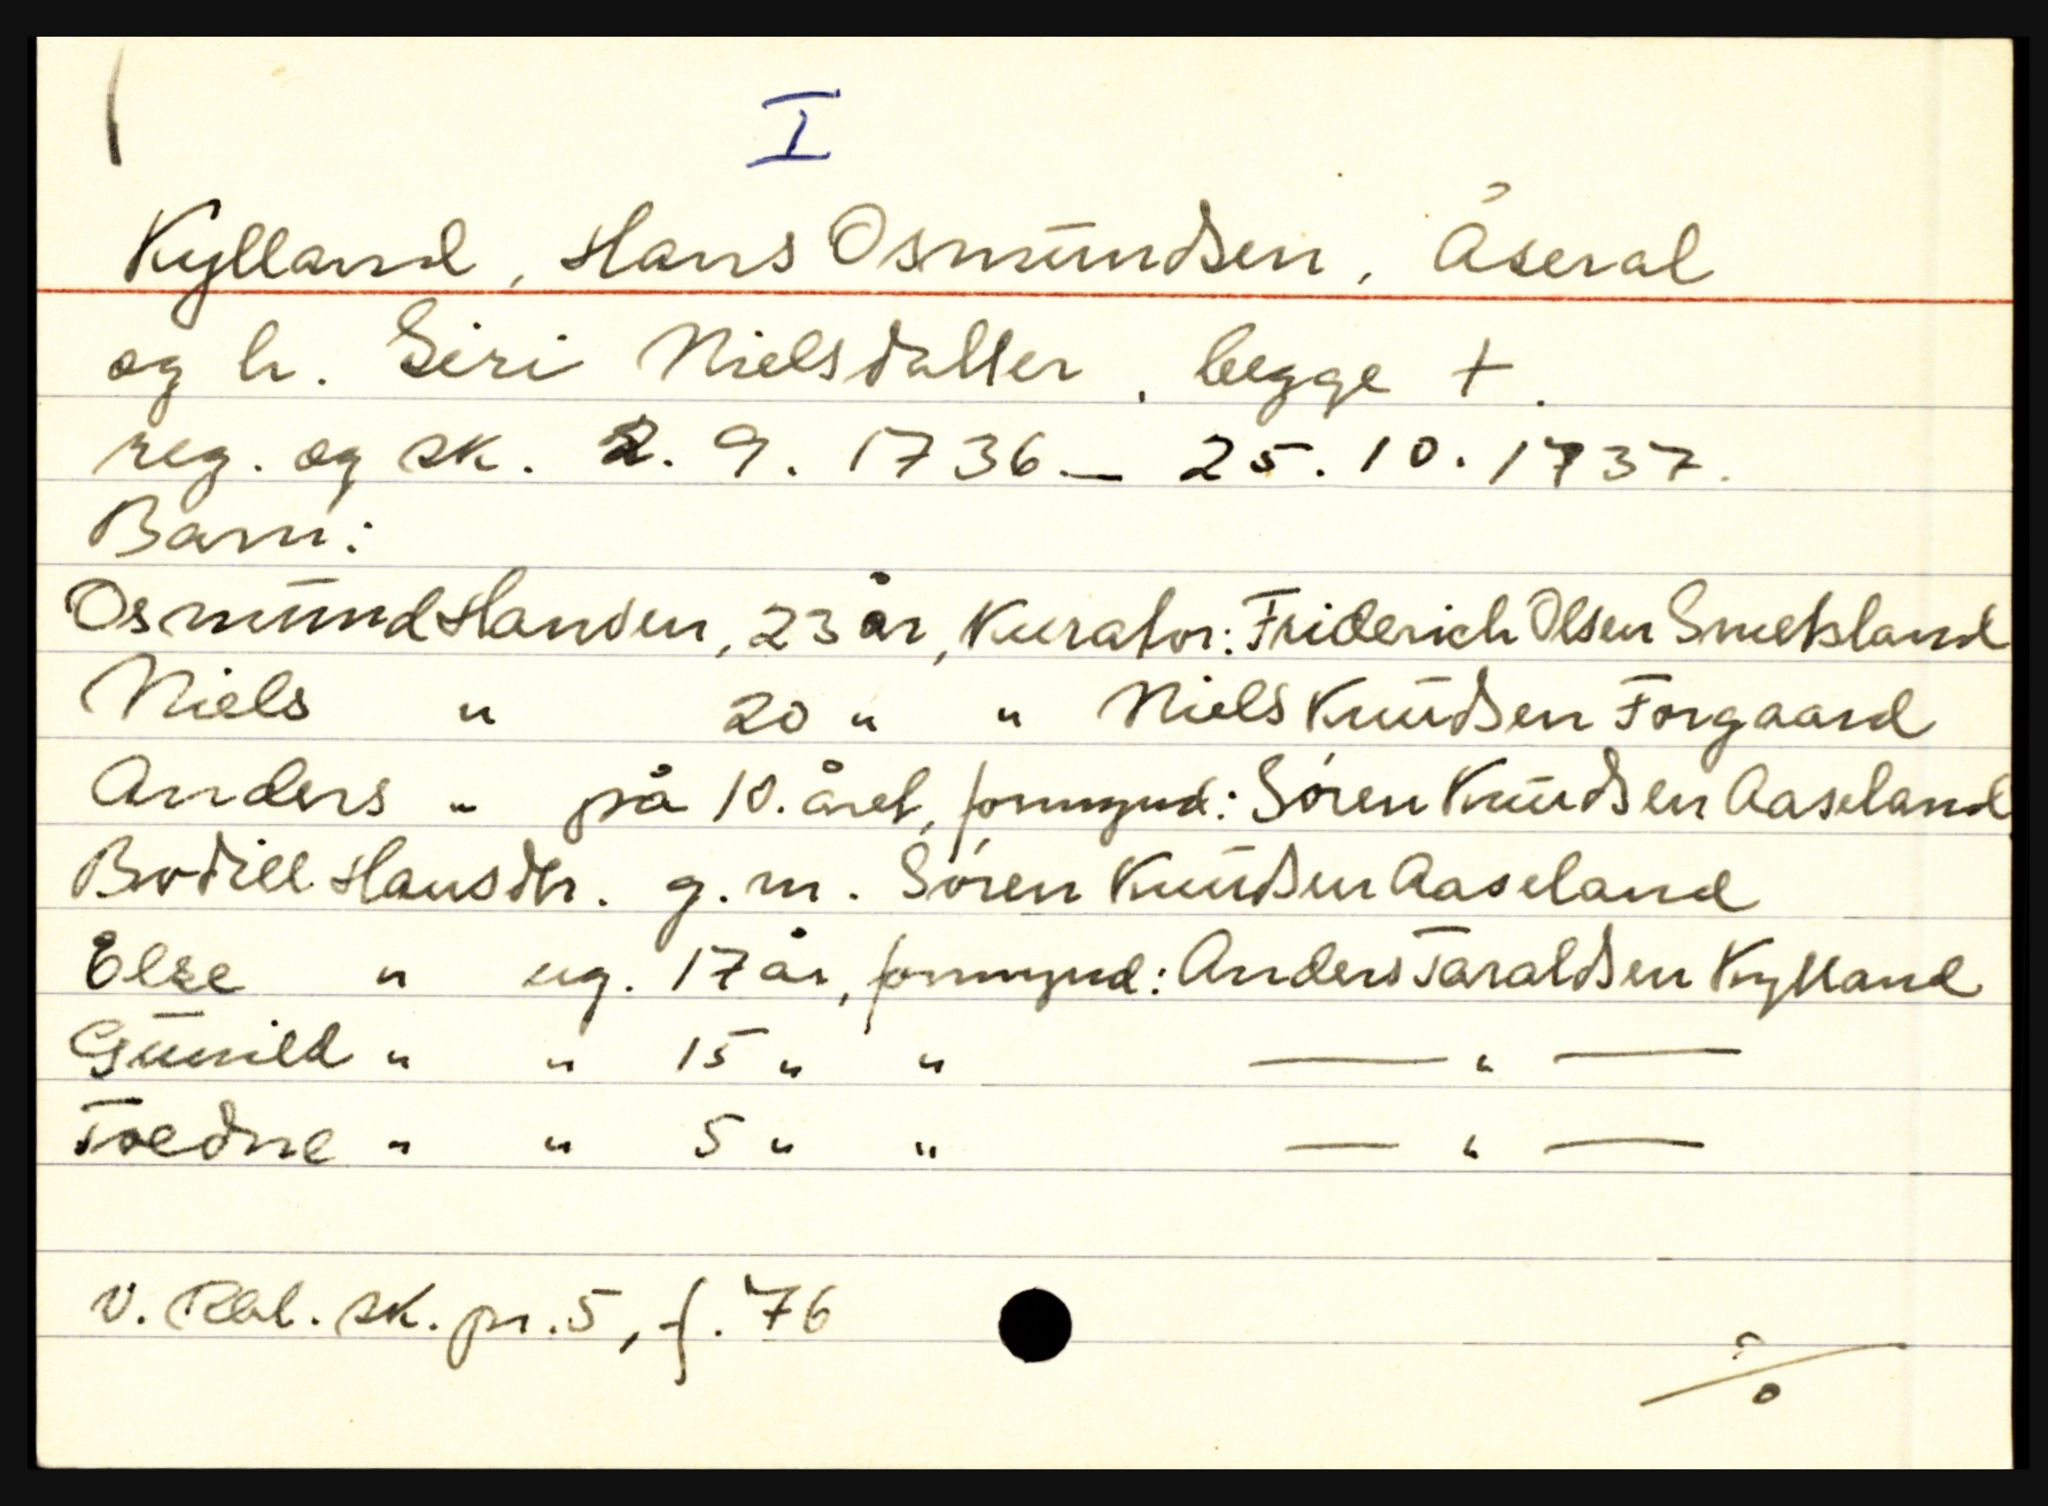 I
Kylland, Hans Osmundsen, Åseral
og h. Siri Nielsdatter, begge +.
reg. og sk. 2. 9. 1736 — 25. 10. 1737.
Barn:
Osmund Hansen, 23 år, Kurator: Friderich Olsen Smetsland
Niels " 20 " " Niels Knudsen Forgaard
Anders " på 10. året, formynd: Søren Knudsen Aaseland
Bodill Hansdtr. g. m. Søren Knudsen Aaseland
Else " ug. 17 år, formynd: Anders Taraldsen Kylland
Gunild " " 15 " " — " —
Toedne " " 5 " " — " —
V. Rbl. sk. pr. 5, f. 76